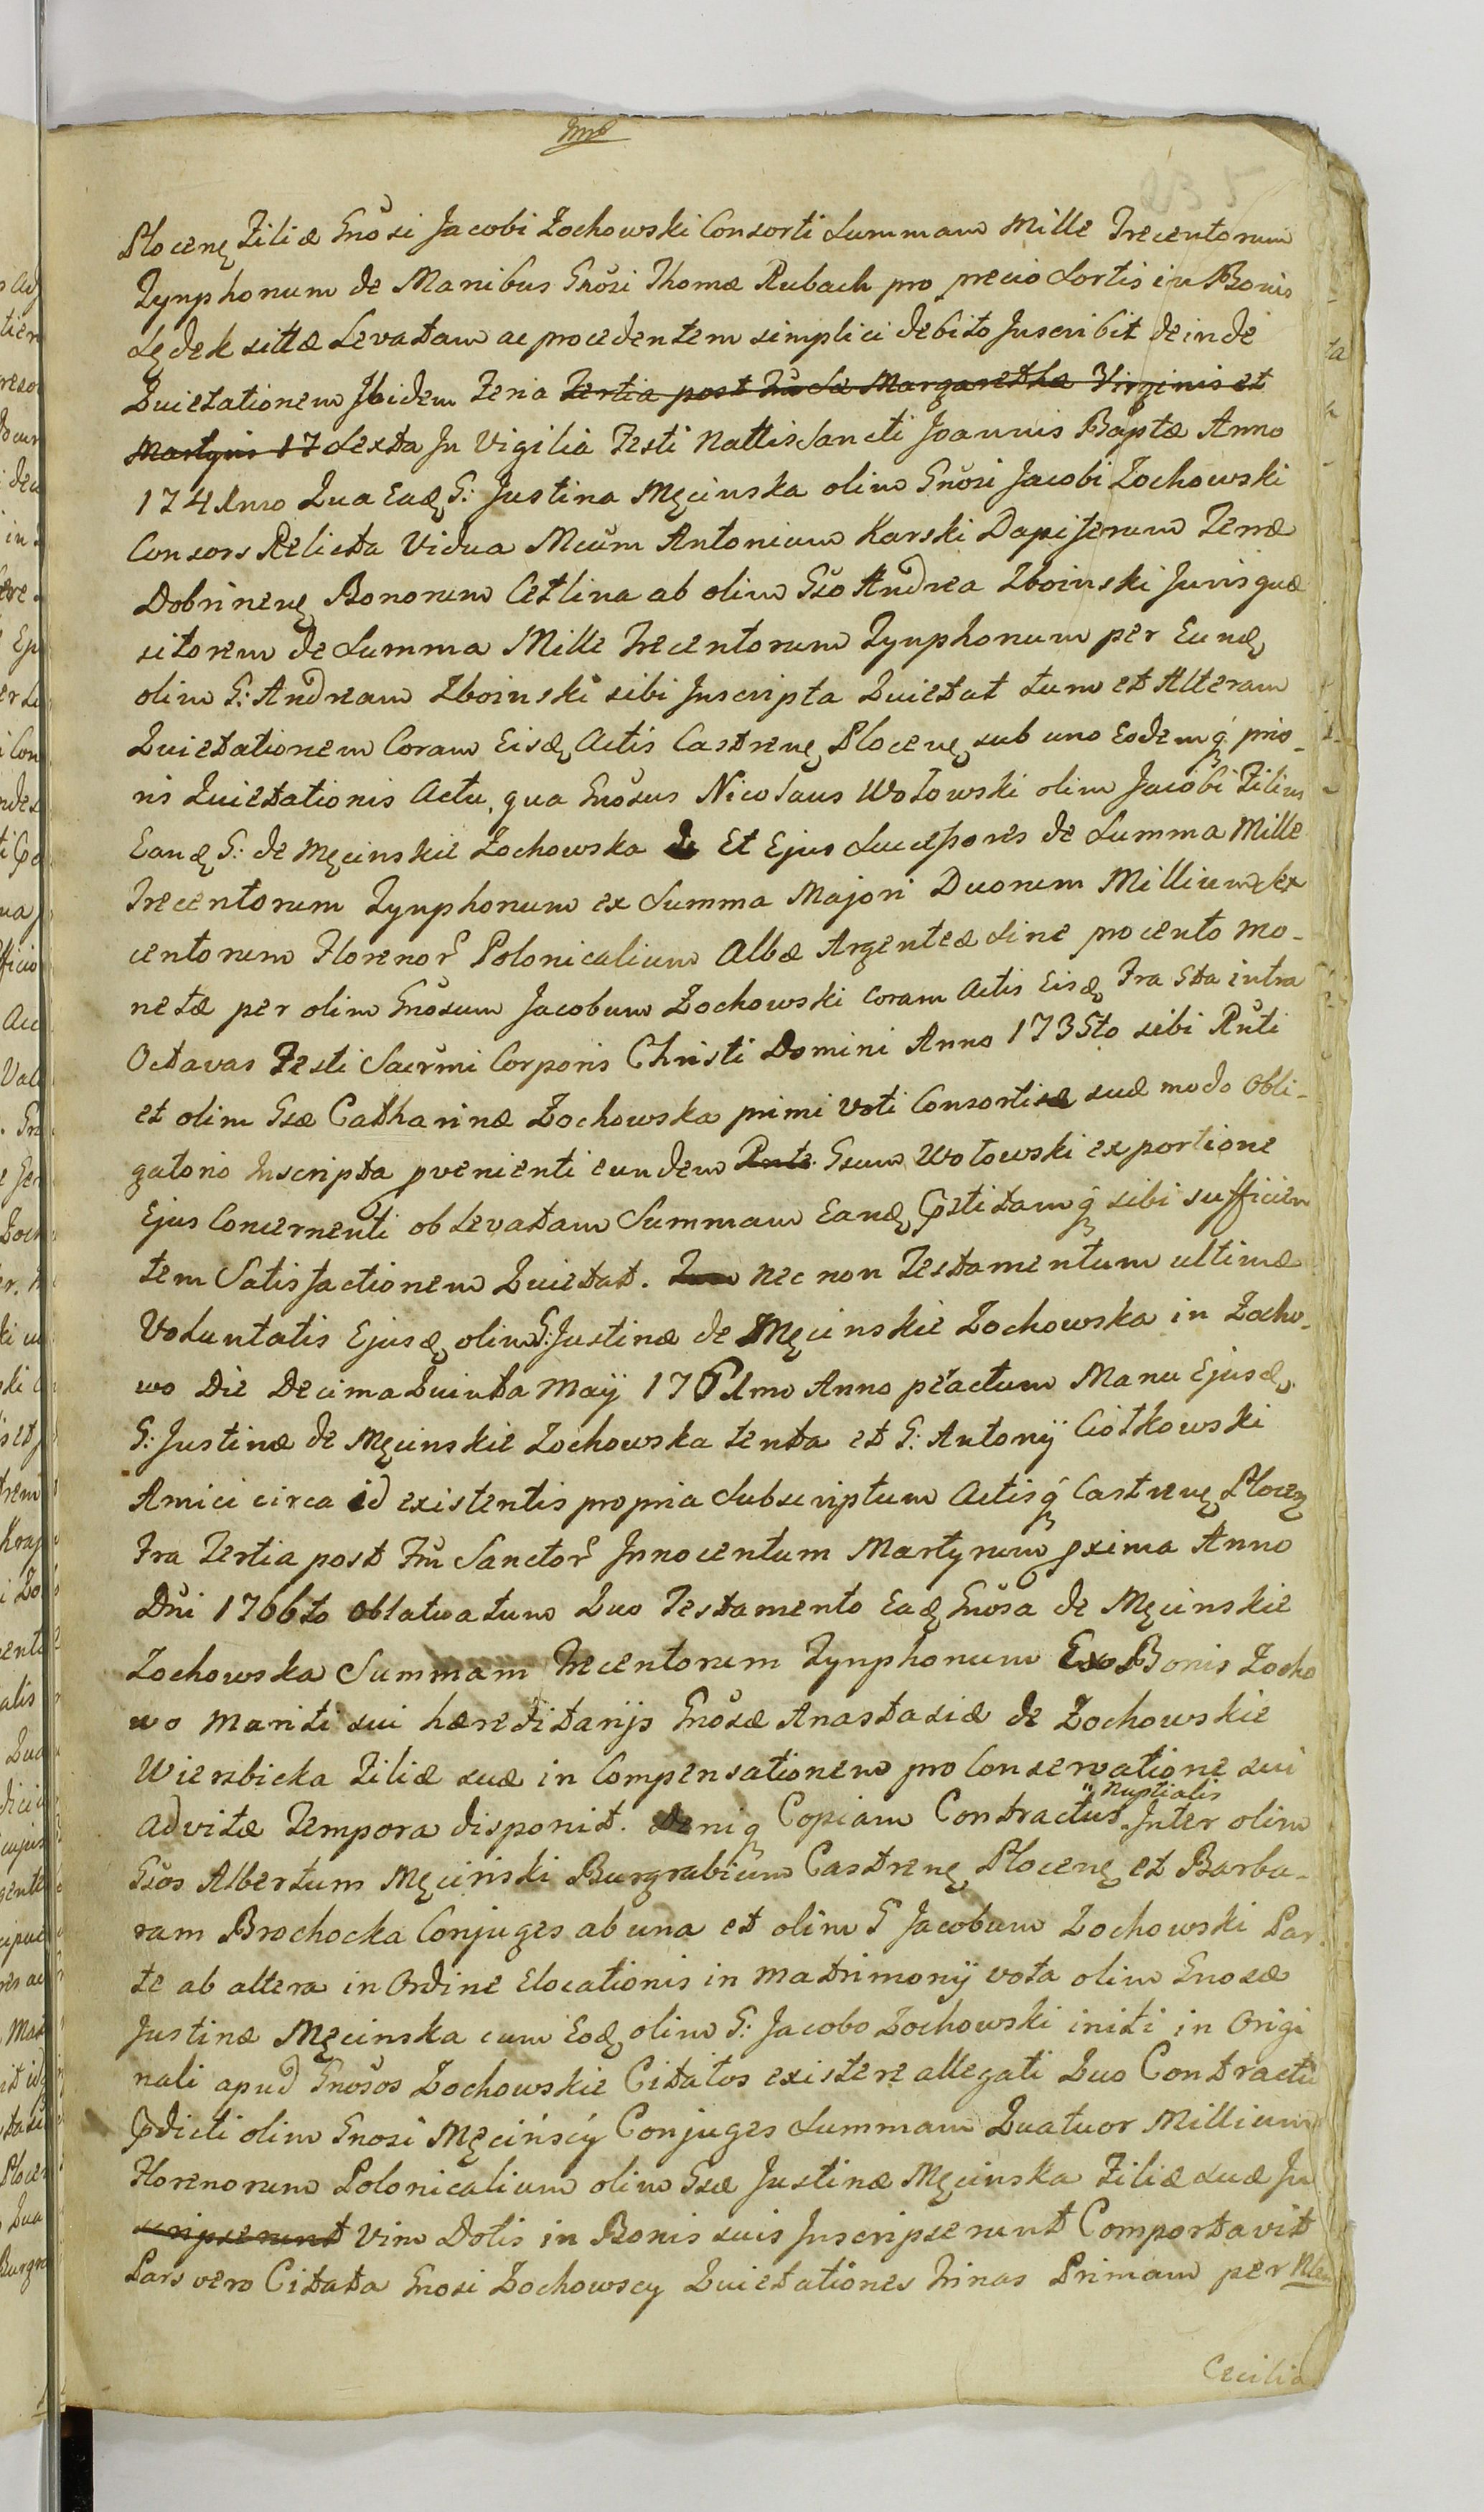 235
Plocenę Filiæ Gnosi Jacobi Zochowski Consorti Summam Mille Trecentorum
Tynphonum de Manibus Gnosi Thomæ Rubach pro precio Sortis in Bonis
Lędek sittæ Levatam ac procedentem simplici debito Inscribit deinde
Quietationem Ibidem Feria Tertia post Fm Sæ Margarethæ Virginis et
Martyris 17 Sexta In Vigilia Festi Nattis Sancti Joannis Baptæ Anno
1741mo Qua Eadę G: Justina Męcinska olim Gnosi Jacobi Zochowski
Consors Relicta Vidua Mcum Antonium Karski Dapiferum Terræ
Dobrinenę Bonorum Cetlina ab olim Gso Andrea Zboinski Juris quæ
sitorem de Summa Mille Trecentorum Tynphonum per Eundę
olim G: Andream Zboinski sibi Inscripta Quietat tum et Alteram
Quietationem Coram Eisdę Actis Castrenę Plocenę sub uno Eodemq prio-
ris Quietationis Actu, qua Gnosus Nicolaus Wotowski olim Jacobi Filius
Eandę G: de Męcinskie Zochowska de Et Ejus Successores de Summa Mille
Trecentorum Tynphonum ex Summa Majori Duorum Millium Sex
centorum Florenor Polonicalium Albæ Argenteæ Sine procento mo-
netæ per olim Gnosum Jacobum Zochowski Coram Actis Eisdę Fra Sta intra
Octavas Festi Sacrmi Corporis Christi Domini Anno 1735to sibi Rnti
et olim Gsæ Catharinæ Zochowska primi Voti Consorti suæ modo Obli-
gatorio Inscripta pvenienti eundem Rnte Gsum Wotowski ex portione
Ejus Concernenti ob Levatam Summam Eandę pstitamq sibi sufficien
tem Satisfactionem Quietat. Tum nec non Testamentum ultimæ
Voluntatis Ejusdę olim G: Justinæ de Męcinskie Zochowska in Zocho-
wo Die Decima Quinta Maij 1761mo Anno peractum Manu Ejusdę
G: Justinæ de Męcinskie Zochowska tenta et G: Antonij Ciotkowski
Amici circa id existentis propria Subscriptum Actisq Castrenę Plocenę
Fra Tertia post Fm Sanctor Innocentum Martyrum pxima Anno
Dni 1766to Oblatuatum Quo Testamento Eadę Gnosa de Męcinskie
Zochowska Summam Trecentorum Tynphonum Ex Bonis Zocho
wo Mariti sui hæreditarijs Gnosæ Anastasiæ de Zochowskie
Wierzbicka Filiæ suæ in Compensationem pro Conservatione sui
ad vitæ Tempora disponit. Deniq Copiam Contractus Nuptialis Inter olim
Gsos Albertum Męcinski Burgrabium Castrenę Plocenę et Barba-
ram Brochocka Conjuges ab una et olim G Jacobum Zochowski Par
te ab altera in Ordine Elocationis in Matrimonij vota olim Gnosæ
Justinæ Męcinska cum Eodę olim G: Jacobo Zochowski initi in Origi
nali apud Gnosos Zochowskie Citatos existere allegati Quo Contractu
pdicti olim Gnosi Męcińscÿ Conjuges Summam Quatuor Millium
Florenorum Polonicalium olim Gsæ Justinæ Męcinska Filiæ Suæ In
scripserunt Vim Dotis in Bonis suis Inscripserunt Comportavit
Pars vero Citata Gnosi Zochowscy Quietationes Trinas Primam per
Cecilia